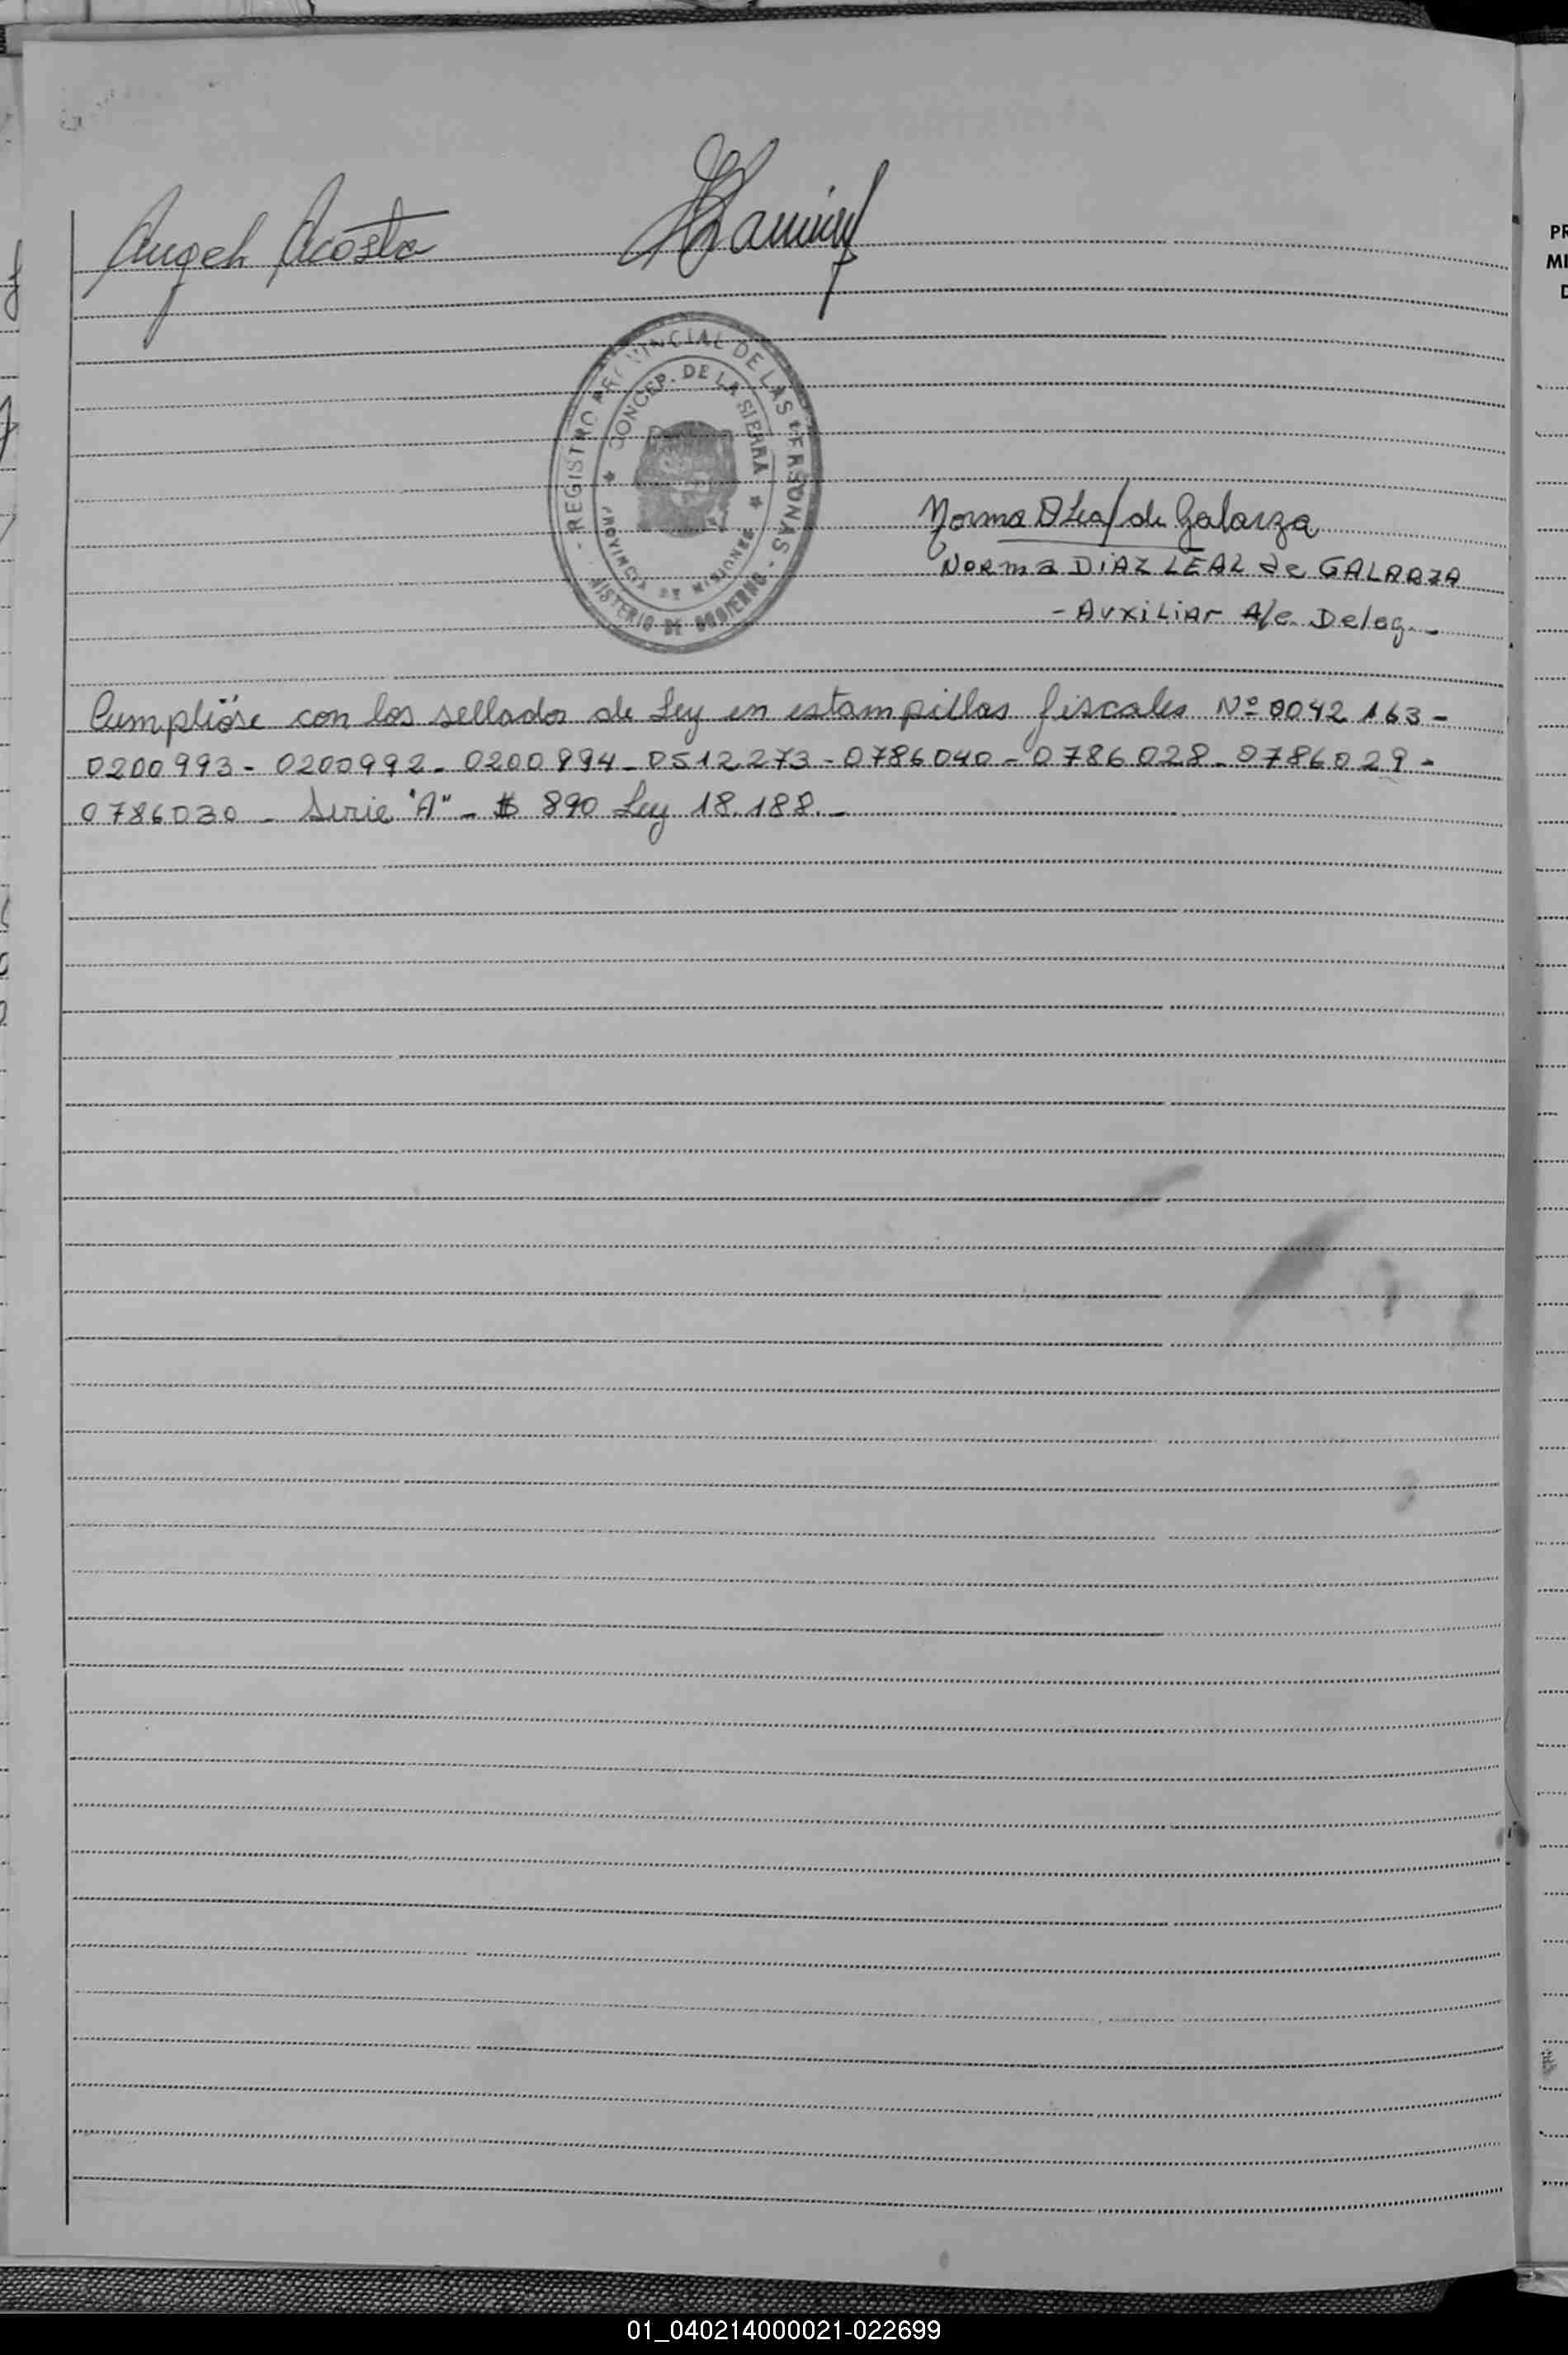 Angel Acosta
REGISTRO PROVINCIAL DE LAS PERSONAS
CONCEP. DE LA SIERRA
PROVINCIA DE MISIONES
NISTERIO DE GOBIERNO
Norma DLeal de Galarza
Norma DIAZ LEAL de GALARZA
- Auxiliar A/c. Deleg. -
Cumplióse con los sellados de Ley en estampillas fiscales Nº 0042163-
0200993- 0200992- 0200994- 0512273- 0786040- 0786028- 0786029-
0786030 - Serie "A" - $ 890 Ley 18.188.-
PR
MI
D
01_040214000021-022699